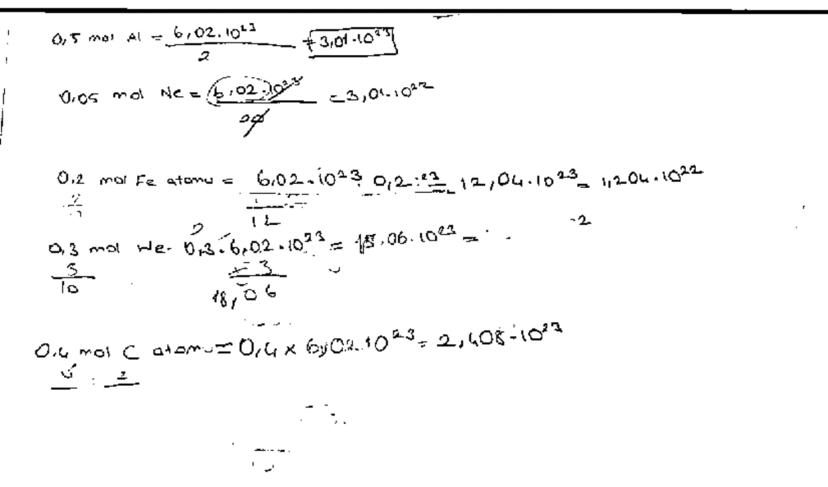 0,5 mol Al = 6,02.10²³ / 2 = 3,01.10²³
0,05 mol Ne = 6,02.10²³ / 20 = 3,01.10²²
0,2 mol Fe atomu = 6,02.10²³ 0,2 = 12,04.10²³ = 1,204.10²²
12
0,3 mol He 0,3.6,02.10²³ = 18,06.10²³ =
3/10 × 3
18,06
0,4 mol C atomu = 0,4 x 6,02.10²³ = 2,408.10²³